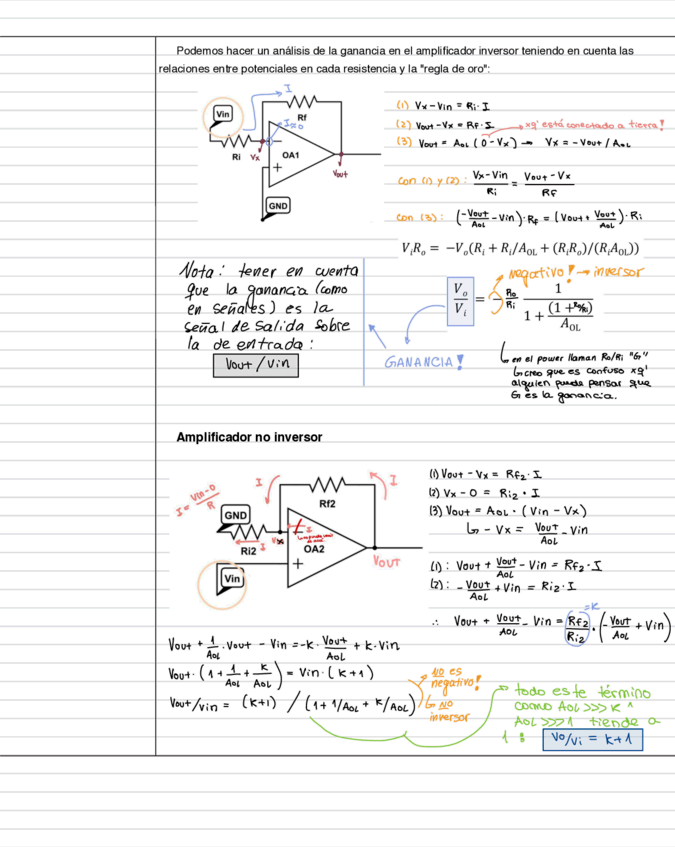 Podemos hacer un análisis de la ganancia en el amplificador inversor teniendo en cuenta las
relaciones entre potenciales en cada resistencia y la "regla de oro":
I
Vin
Rf
I=0
Ri
Vx
OA1
Vout
GND
(1) Vx - Vin = Ri · I
(2) Vout - Vx = RF · I
xq' está conectado a tierra!
(3) Vout = AOL (0 - Vx) → Vx = - Vout / AOL
con (1) y (2): (Vx - Vin)/Ri = (Vout - Vx)/RF
con (3): (-Vout/AOL - Vin) · RF = (Vout + Vout/AOL) · Ri
ViRo = −Vo(Ri + Ri/AOL + (RiRo)/(RiAOL))
Nota: tener en cuenta
que la ganancia (como
en señales) es la
señal de salida sobre
la de entrada:
Vout / Vin
negativo! → inversor
Vo/Vi = - Ro/Ri 1/(1 + (1+Ro/Ri)/AOL)
GANANCIA!
↳ en el power llaman Ro/Ri "G"
↳ creo que es confuso xq'
alguien puede pensar que
G es la ganancia.
Amplificador no inversor
I = (Vin-0)/R
I
I
Rf2
GND
Vx
Ri2
I
OA2
Vin
VOUT
(1) Vout - Vx = RF2 · I
(2) Vx - 0 = Ri2 · I
(3) Vout = AOL · (Vin - Vx)
↳ - Vx = Vout/AOL - Vin
(1): Vout + Vout/AOL - Vin = RF2 · I
(2): - Vout/AOL + Vin = Ri2 · I
=K
∴ Vout + Vout/AOL - Vin = RF2/Ri2 · (-Vout/AOL + Vin)
Vout + 1/AOL · Vout - Vin = -K · Vout/AOL + K · Vin
Vout · (1 + 1/AOL + K/AOL) = Vin · (K+1)
Vout/Vin = (K+1) / (1 + 1/AOL + K/AOL)
NO es
negativo!
↳ NO
inversor
todo este término
como AOL >>> K ^
AOL >>> 1 tiende a
1 : Vo/Vi = K+1